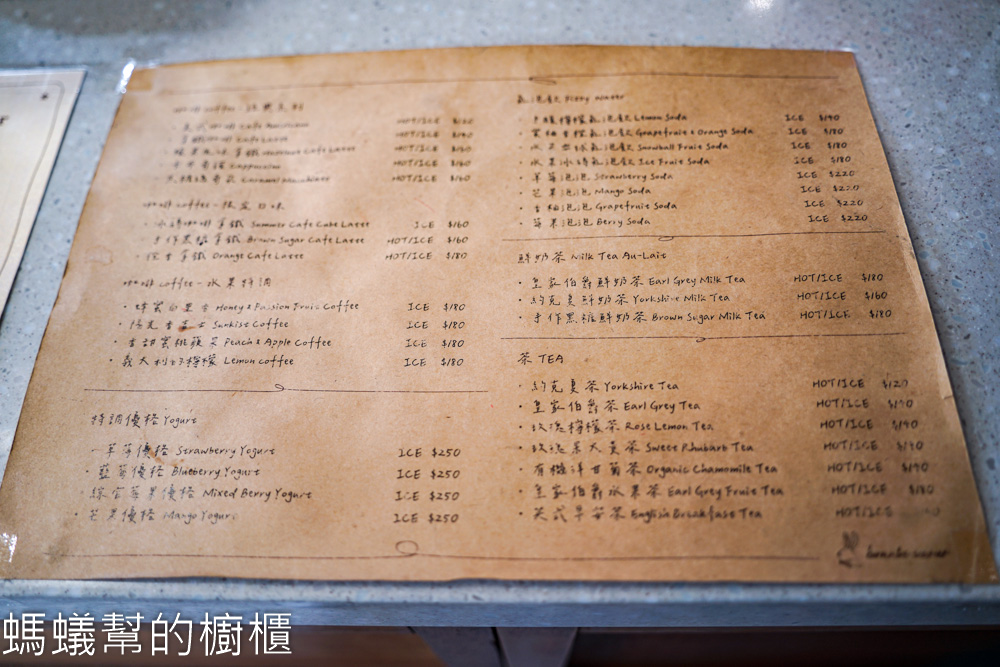 咖啡 Coffee
Cafe Americano HOT/ICE
Cafe Latte HOT/ICE
Hazelnut Cafe Latte HOT/ICE
Cappuccino HOT/ICE $160
HOT/ICE $160
咖啡 Coffee - 限定口味
冰磚咖啡拿鐵 Summer Cafe Cube Latte ICE $160
手作黑糖拿鐵 Brown Sugar Cafe Latte HOT/ICE $160
拿鐵 Orange Cafe Latte HOT/ICE $180
咖啡 Coffee - 水果特調
蜂蜜百里香 Honey & Passion Fruit Coffee ICE $180
陽光香吉士 Sunkist Coffee ICE $180
香甜蜜桃蘋果 Peach & Apple Coffee ICE $180
義大利檸檬 Lemon Coffee ICE $180
特調優格 Yogurt
草莓優格 Strawberry Yogurt ICE $250
藍莓優格 Blueberry Yogurt ICE $250
綜合莓果優格 Mixed Berry Yogurt ICE $250
芒果優格 Mango Yogurt ICE $250
氣泡飲 Fizzy Water
檸檬氣泡飲 Lemon Soda ICE $140
氣泡飲 Grapefruit & Orange Soda ICE $180
氣泡飲 Snowball Fruit Soda ICE $180
水果冰磚氣泡飲 Ice Fruit Soda ICE $180
草莓泡泡 Strawberry Soda ICE $220
芒果泡泡 Mango Soda ICE $220
香柚泡泡 Grapefruit Soda ICE $220
莓果泡泡 Berry Soda ICE $220
鮮奶茶 Milk Tea Au-Lait
皇家伯爵鮮奶茶 Earl Grey Milk Tea HOT/ICE $180
約克夏鮮奶茶 Yorkshire Milk Tea HOT/ICE $160
手作黑糖鮮奶茶 Brown Sugar Milk Tea HOT/ICE $180
茶 TEA
約克夏茶 Yorkshire Tea HOT/ICE $120
皇家伯爵茶 Earl Grey Tea HOT/ICE $140
玫瑰檸檬茶 Rose Lemon Tea HOT/ICE $140
玫瑰果大黃茶 Sweet Rhubarb Tea HOT/ICE $140
有機洋甘菊茶 Organic Chamomile Tea HOT/ICE $140
皇家伯爵水果茶 Earl Grey Fruit Tea HOT/ICE $180
英式早安茶 English Breakfast Tea HOT/ICE
螞蟻幫的櫥櫃